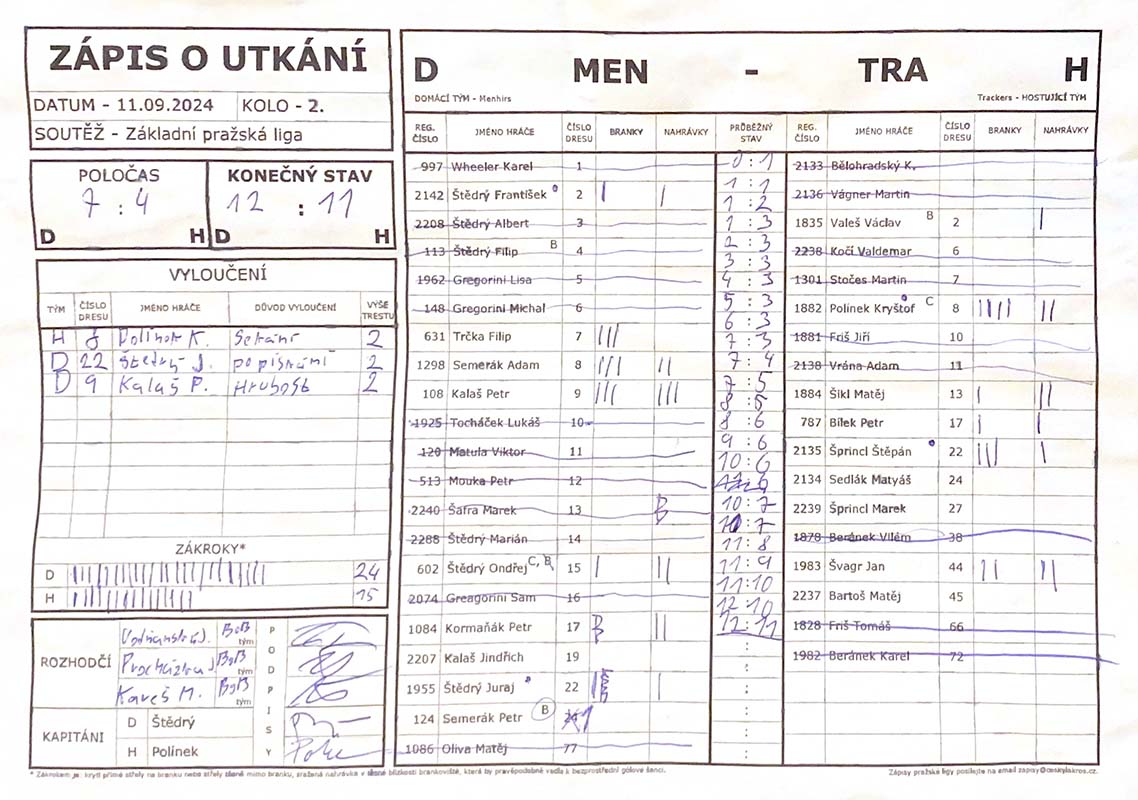 ZÁPIS O UTKÁNÍ
DATUM - 11.09.2024 KOLO - 2.
SOUTĚŽ - Základní pražská liga
POLOČAS KONEČNÝ STAV
7 : 4 12 : 11
D H D H
VYLOUČENÍ
TÝM ČÍSLO DRESU JMÉNO HRÁČE DŮVOD VYLOUČENÍ VÝŠE TRESTU
H 8 Polínek K. Sekání 2
D 22 Štědrý J. popískání 2
D 9 Kalaš P. Hrubost 2
ZÁKROKY*
D 24
H 15
ROZHODČÍ
BoB tým
Procházka J BoB tým
Kareš M. BoB tým
PODPISY
KAPITÁNI
D Štědrý
H Polínek
D MEN - TRA H
DOMÁCÍ TÝM - Menhirs Trackers - HOSTUJÍCÍ TÝM
REG. ČÍSLO JMÉNO HRÁČE ČÍSLO DRESU BRANKY NAHRÁVKY PRŮBĚŽNÝ STAV REG. ČÍSLO JMÉNO HRÁČE ČÍSLO DRESU BRANKY NAHRÁVKY
997 Wheeler Karel 1
2142 Štědrý František 2 | |
2208 Štědrý Albert 3
113 Štědrý Filip B 4
1962 Gregorini Lisa 5
148 Gregorini Michal 6
631 Trčka Filip 7 |||
1298 Semerák Adam 8 ||| ||
108 Kalaš Petr 9 ||| |||
1925 Tocháček Lukáš 10
120 Matula Viktor 11
513 Mouka Petr 12
2240 Šafra Marek 13
2288 Štědrý Marián 14
602 Štědrý Ondřej C, B 15 | ||
2074 Greagorini Sam 16
1084 Kormaňák Petr 17 ||
2207 Kalaš Jindřich 19
1955 Štědrý Juraj 22 |
124 Semerák Petr B
1086 Oliva Matěj 77
0 : 1
1 : 1
1 : 2
1 : 3
2 : 3
3 : 3
4 : 3
5 : 3
6 : 3
7 : 3
7 : 4
7 : 5
8 : 5
8 : 6
9 : 6
10 : 6
11 : 6
10 : 7
10 : 7
11 : 8
11 : 9
11 : 10
12 : 10
12 : 11
2133 Bělohradský K.
2136 Vágner Martin
1835 Valeš Václav B 2 |
2238 Kočí Valdemar 6
1301 Stočes Martin 7
1882 Polínek Kryštof C 8 |||| ||
1881 Friš Jiří 10
2138 Vrána Adam 11
1884 Šikl Matěj 13 | ||
787 Bílek Petr 17 | |
2135 Šprincl Štěpán 22 ||| |
2134 Sedlák Matyáš 24
2239 Šprincl Marek 27
1878 Beránek Vilém 38
1983 Švagr Jan 44 || ||
2237 Bartoš Matěj 45
1828 Friš Tomáš 66
1982 Beránek Karel 72
* Zákrokem je: krytí přímé střely na branku nebo střely těsně mimo branku, sražená nahrávka v těsné blízkosti brankoviště, která by pravěpodobně vedla k bezprostřední gólové šanci.
Zápisy pražské ligy posílejte na email zapisy@ceskylakros.cz.